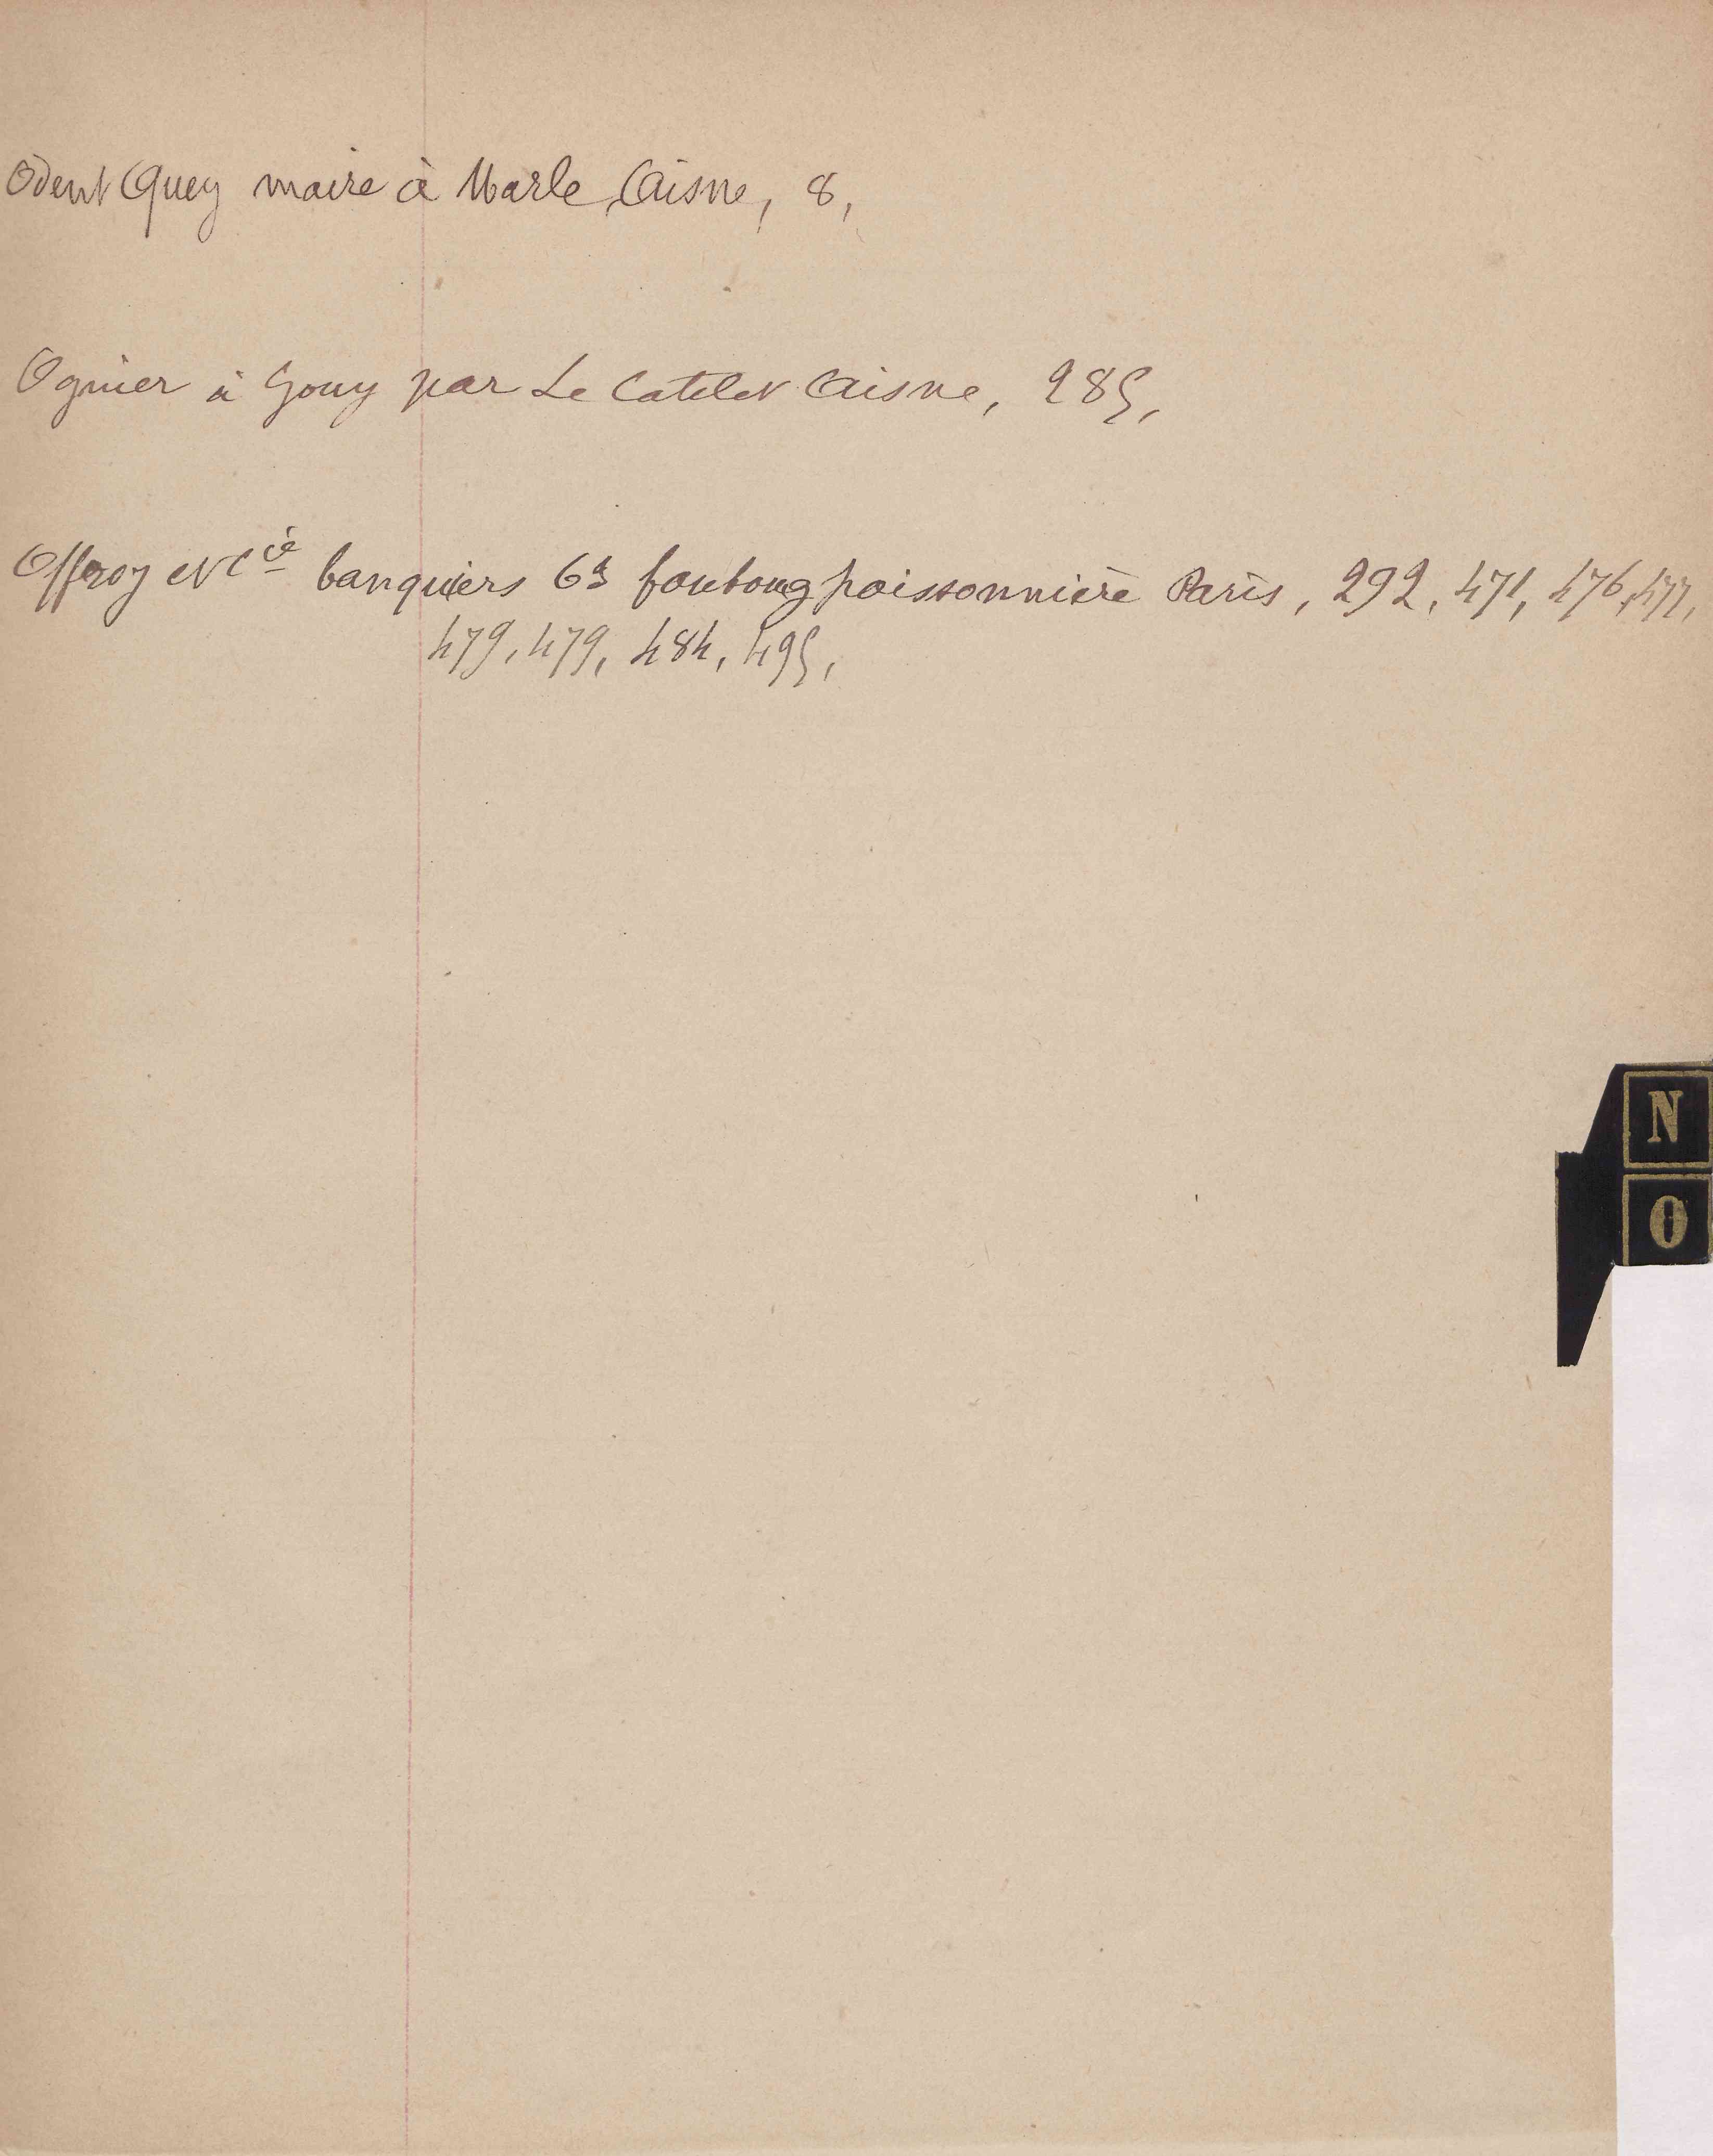 Odent Quey maire à Marle, Aisne, 8,
Ognier à Gouy par Le Catelet Aisne, 285,
Offroy et Cie banquiers 63 faubourg poissonnière Paris, 292, 471, 476, 477,
479, 479, 484, 495,
N
O